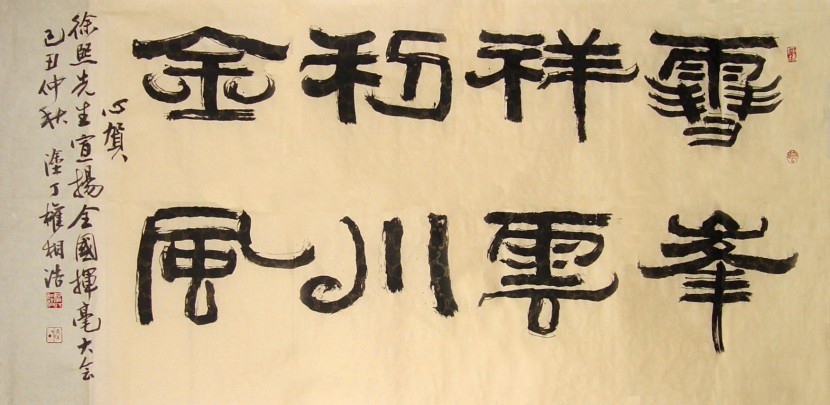 雪峯
祥雲
利川
金風
心賀
徐熙先生宣揚全國揮毫大会
己丑仲秋 塗丁 權相浩